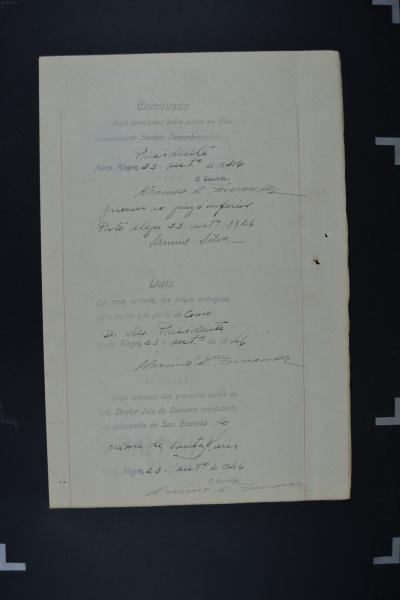 Conclusão
Faço conclusos estes autos ao Ex-
cellentissimo Senhor Dezembargador
Presidente
Porto Alegre, 23 - set.º de 1946
O Escrivão
Baixem ao juizo inferior
Porto Alegre 23 - set.º 1946
Samuel Silva
Data
Em meu cartorio, me foram entregues
estes autos por parte do Exmo
Sr. des. Presidente
Porto Alegre, 23 - set.º de 1946
Faço remessa dos presentes autos ao
Snr. Doutor Juiz da Comarca competente,
por intermedio do Snr. Escrivão do
crime de Santa Maria
Porto Alegre, 23 - set.º de 1946
O Escrivão